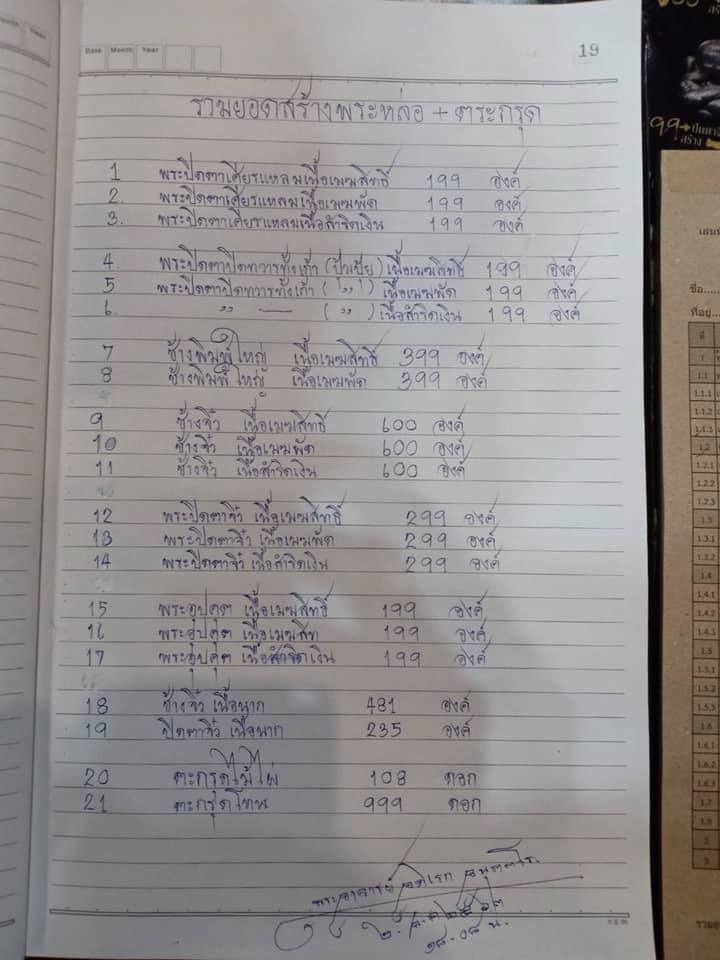 Date Month Year
19
รวมยอดสร้างพระหล่อ + ตระกรุด
1 พระปิดตาเศียรแหลมเนื้อเมฆสิทธิ์ 199 องค์
2. พระปิดตาเศียรแหลมเนื้อเมฆพัด 199 องค์
3. พระปิดตาเศียรแหลมเนื้อสำริดเงิน 199 องค์
4. พระปิดตาปิดทวารทั้งเก้า (ปุ้มปุ้ย) เนื้อเมฆสิทธิ์ 199 องค์
5 พระปิดตาปิดทวารทั้งเก้า ( " ) เนื้อเมฆพัด 199 องค์
6. " — ( " ) เนื้อสำริดเงิน 199 องค์
7 ช้างพิมพ์ใหญ่ เนื้อเมฆสิทธิ์ 399 องค์
8 ช้างพิมพ์ใหญ่ เนื้อเมฆพัด 399 องค์
9 ช้างจิ๋ว เนื้อเมฆสิทธิ์ 600 องค์
10 ช้างจิ๋ว เนื้อเมฆพัด 600 องค์
11 ช้างจิ๋ว เนื้อสำริดเงิน 600 องค์
12 พระปิดตาจิ๋ว เนื้อเมฆสิทธิ์ 299 องค์
13 พระปิดตาจิ๋ว เนื้อเมฆพัด 299 องค์
14 พระปิดตาจิ๋ว เนื้อสำริดเงิน 299 องค์
15 พระอุปคุต เนื้อเมฆสิทธิ์ 199 องค์
16 พระอุปคุต เนื้อเมฆสิท 199 องค์
17 พระอุปคุต เนื้อสำริดเงิน 199 องค์
18 ช้างจิ๋ว เนื้อนาก 481 องค์
19 ปิดตาจิ๋ว เนื้อนาก 235 องค์
20 ตะกรุดไม้ไผ่ 108 ดอก
21 ตะกรุดโทน 999 ดอก
พระอาจารย์
๑๘.๐๘ น.
99
สร้าง
ชื่อ.....
ที่อยู่...
ที่
1
1.1
1.1.1
1.1.2
1.1.3
1.2
1.2.1
1.2.2
1.2.3
1.3
1.3.1
1.3.2
1.4
1.4.1
1.4.2
1.4.3
1.5
1.5.1
1.5.2
1.5.3
1.6
1.6.1
1.6.2
1.6.3
1.7
1.8
2
3